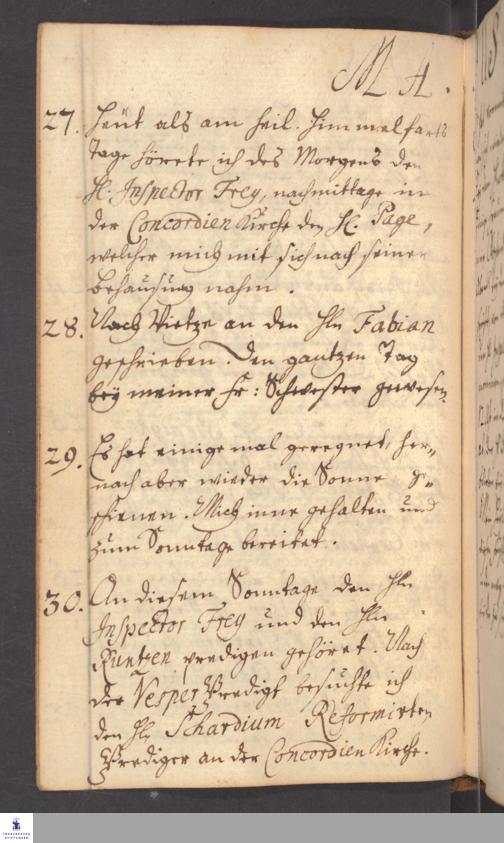 M A.
27. Heut als am heil. Himmelfarts
Tage hörete ich des Morgens den
H. Inspector Frey, nachmittage in
der Concordien Kirche den H. Page,
welcher mich mit sich nach seiner
behausung nahm.
28. Nach Vietze an den Hln Fabian
geschrieben. Den gantzen Tag
bey meiner Fr: Schwester gewesen.
29. Es hat einige mal geregnet, her„
nach aber wieder die Sonne ge„
schienen. Mich inne gehalten und
zum Sonntage bereitet.
30. An diesem Sonntage den Hln
Inspector Frey und den Hln
Kuntzen predigen gehöret. Nach
der Vesper Predigt besuchte ich
den Hl Schardium Reformirten
Prediger an der Concordien Kirche.
FRANCKESCHE
STIFTUNGEN